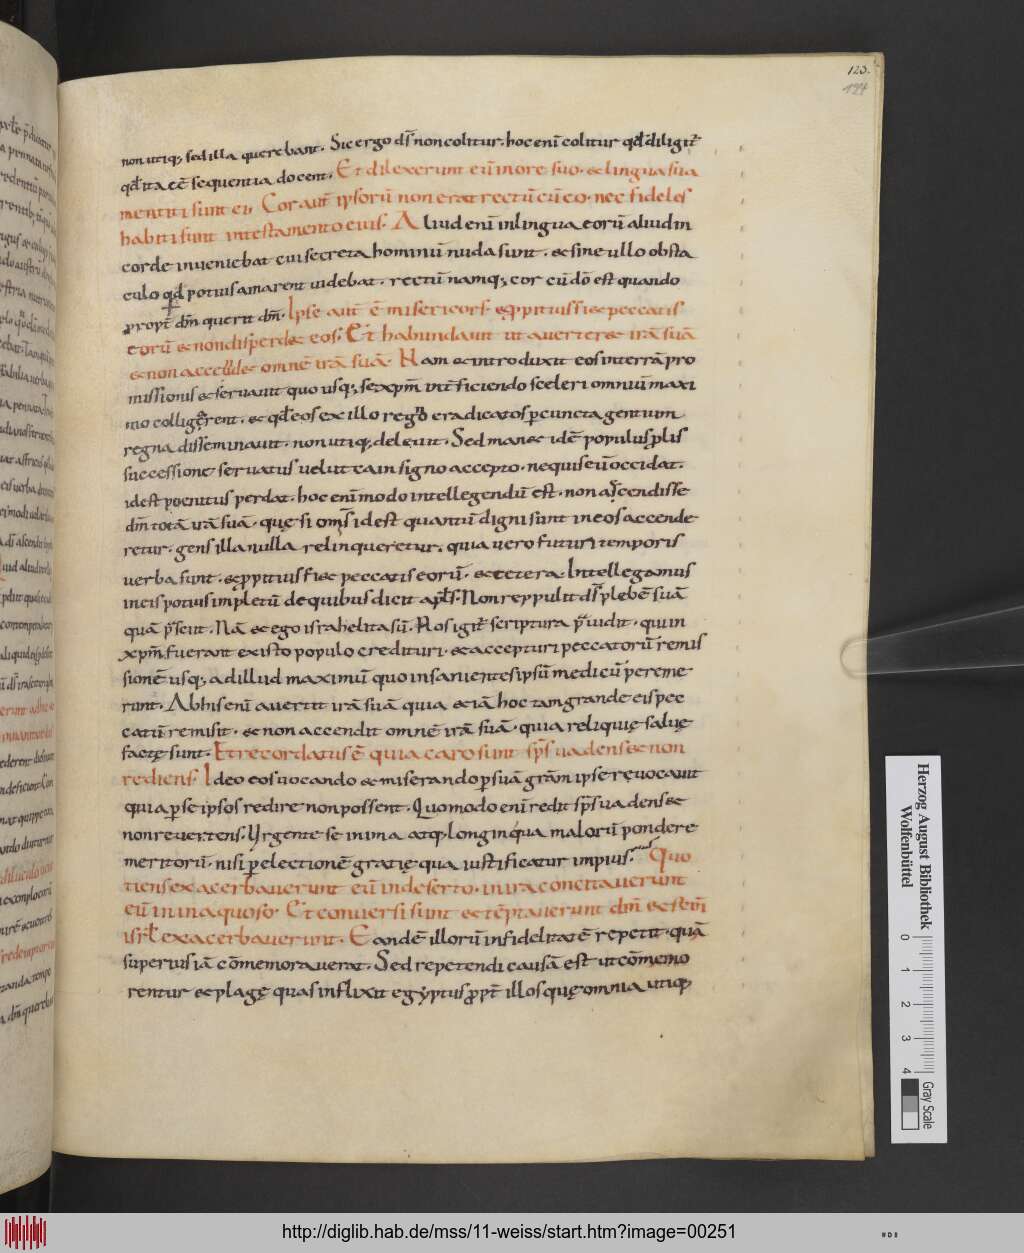 123.
124
non utiq; sed illa querebant. Sic ergo ds̄ non colitur. hoc enī colitur qd̄ diligit̄
qd̄ ita eē sequentia docent. Et dilexerunt eū in ore suo. & lingua sua
mentiti sunt ei. Cor aut̄ ipsorū non erat rectū cū eo. nec fideles
habiti sunt in testamento eius. Aliud enī in lingua eorū aliud in
corde inveniebat cui secreta hominū nuda sunt. & sine ullo obsta
culo qd̄ potius amarent uidebat. rectū namq; cor cū dō est quando
propt̄ dm̄ querit dm̄. Ipse aut̄ ē misericors. & ꝓpitius fi& peccatis
eorū & non disperd& eos. Et habundauit ut auerter& irā suā
& non accend& omnē irā suā. Nam & introduxit eos in terrā pro
missionis & seruauit quo usq; se xp̄m int̄ficiendo sceleri omniū maxi
mo colligerent. & qd̄ eos ex illo regno eradicatos ꝑ cuncta gentium
regna disseminauit. non utiq; deleuit. Sed man& idē populus ꝓlis
successione seruatus uelut cain signo accepto. ne quis eū occidat.
id est poenitus perdat. hoc enī modo intellegendū est. non accendisse
dm̄ totā irā suā. quę si om̄s id est quantū digni sunt in eos accende
retur. gens illa nulla relinqueretur. quia uero futuri temporis
uerba sunt. & ꝓpitius fi& peccatis eorū. & cetera. Intellegamus
in eis potius impletū de quibus dicit apls̄. Non reppulit ds̄ plebē suā
quā p̄sciit. Nā & ego israhelita sū. Nos igit̄ scriptura p̄uidit. qui in
xp̄m fuerant ex isto populo credituri. & accepturi peccatorū remis
sionē usq; ad illud maximū quo insanientes ipsū medicū pereme
runt. Ab his enī auertit irā suā quia etiā hoc tam grande eis pec
catū remisit. & non accendit omnē irā suā. quia reliquię saluę
factę sunt. Et recordatus ē quia caro sunt sps̄ uadens & non
rediens. Ideo eos uocando & miserando ꝑ suā grām ipse reuocauit
quia ꝑ se ipsos redire non possent. Quomodo enī redit sps̄ uadens &
non reuertens. Urgente se in ima atq; longinqua malorū pondere
meritorū. nisi ꝑ electionē gratię qua iustificatur impius. Quo
tiens exacerbauerunt eū in deserto. in ira concitauerunt
eū in inaquoso. Et conuersi sunt & tēptauerunt dm̄ & scm̄
isrl̄ exacerbauerunt. Eandē illorū infidelitatē repetit. quā
superius iā cōmemorauerat. Sed repetendi causā est ut cōmemo
rentur & plagę quas inflixit egyptus ꝓpt̄ illos quę omnia utiq;
Herzog August Bibliothek
Wolfenbüttel
0 1 2 3 4
Gray Scale
http://diglib.hab.de/mss/11-weiss/start.htm?image=00251